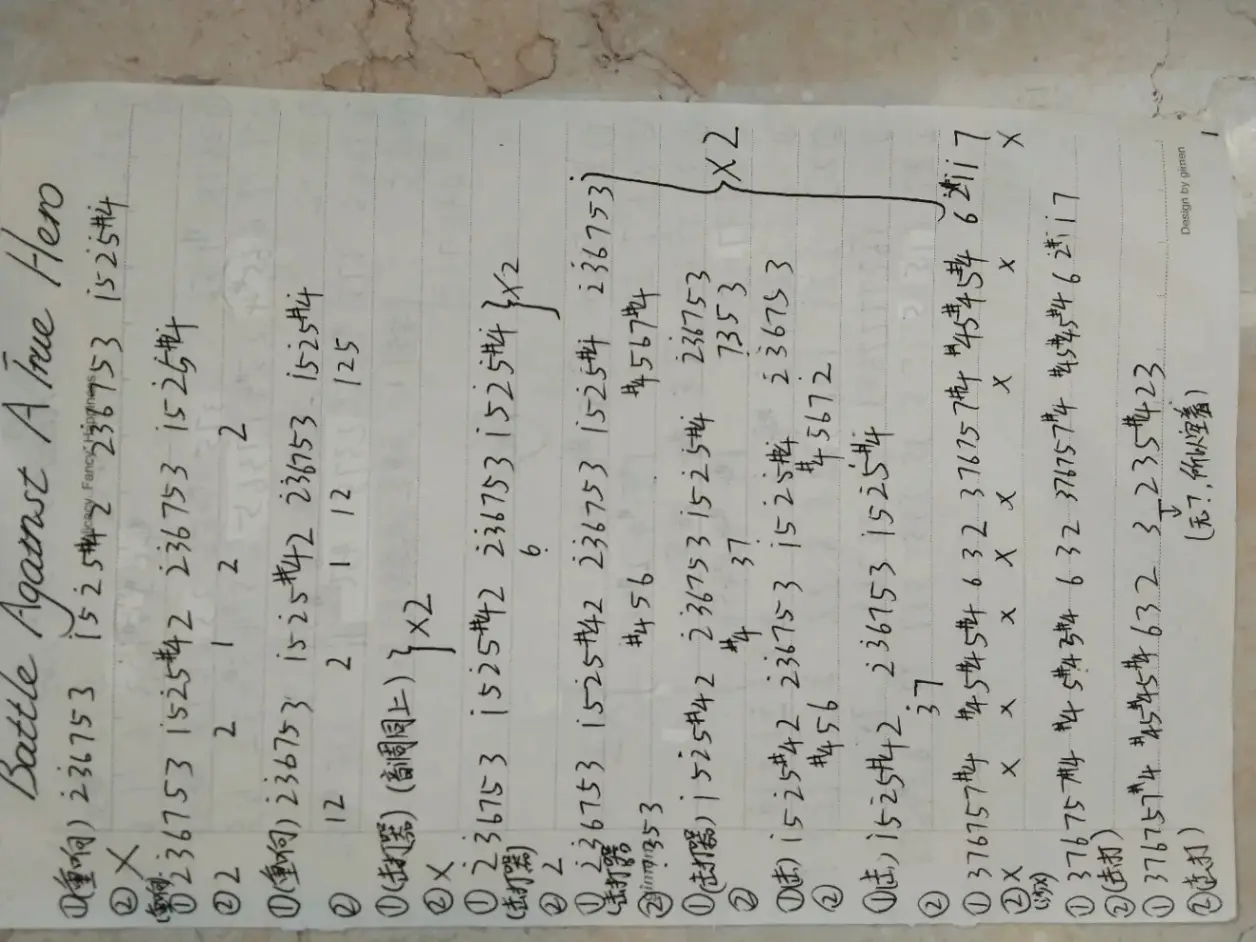 Battle Against A True Hero
①(重响) 2̇36753 i̇525#42 2̇36753 i̇525#4
②X
(重响)①2̇36753 1525#42 2̇36753 i̇525#4
②2 2 1 2 2
①(重响) 2̇36753 i̇525#42 2̇36753 i̇525#4
② 12 2 1 12 125
①(击打器)(音调同上) }×2
②X
①2̇36753 1525#42 2̇36753 1525#4 }×2
(击打器)
②2 6
①2̇36753 1525#42 2̇36753 1525#4 2̇36753
(击打器)
② 353 #456 #4567#4
①(击打器) i̇525#42 2̇36753 1525#4 2̇36753 }×2
② #4 37 7353
①(击) i̇525#42 2̇36753 i̇525#4 2̇36753
② #456 #45672
①(击) i̇525#42 2̇36753 1525#4
② 37
①376757#4 #45#45#4 632 376757#4 #45#45#4 62̇#i̇i̇7
②X X X X X X X X X
①376757#4 #45#45#4 632 376757#4 #45#45#4 62̇#i̇i̇7
②(击打)
①376757#4 #45#45#4 632 3_235#423
②(击打) (无?,所以空着)
Design by gimen
1